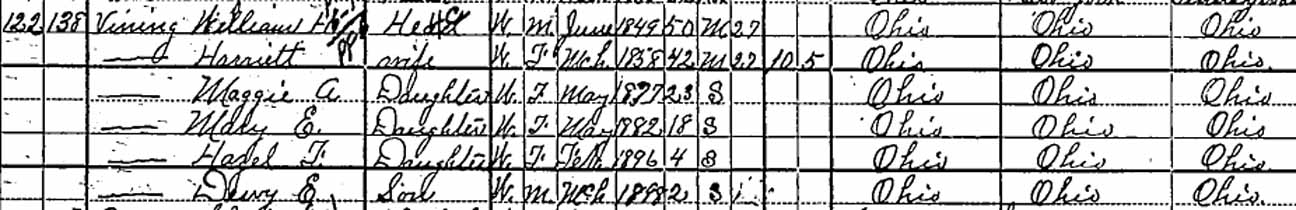 122 138 Vining William H. Head W. M. June 1849 50 M 27 Ohio Ohio Ohio
— Harriett wife W. F Mch 1858 42 M 27 10 5 Ohio Ohio Ohio.
— Maggie A. Daughter W. F. May 1877 23 S Ohio Ohio Ohio
— Mary E. Daughter W. F. May 1882 18 S Ohio Ohio Ohio
— Hazel F. Daughter W. F. Feb. 1896 4 S Ohio Ohio Ohio
— Dewy E. Son W. M. Mch 1898 2 S Ohio Ohio Ohio.